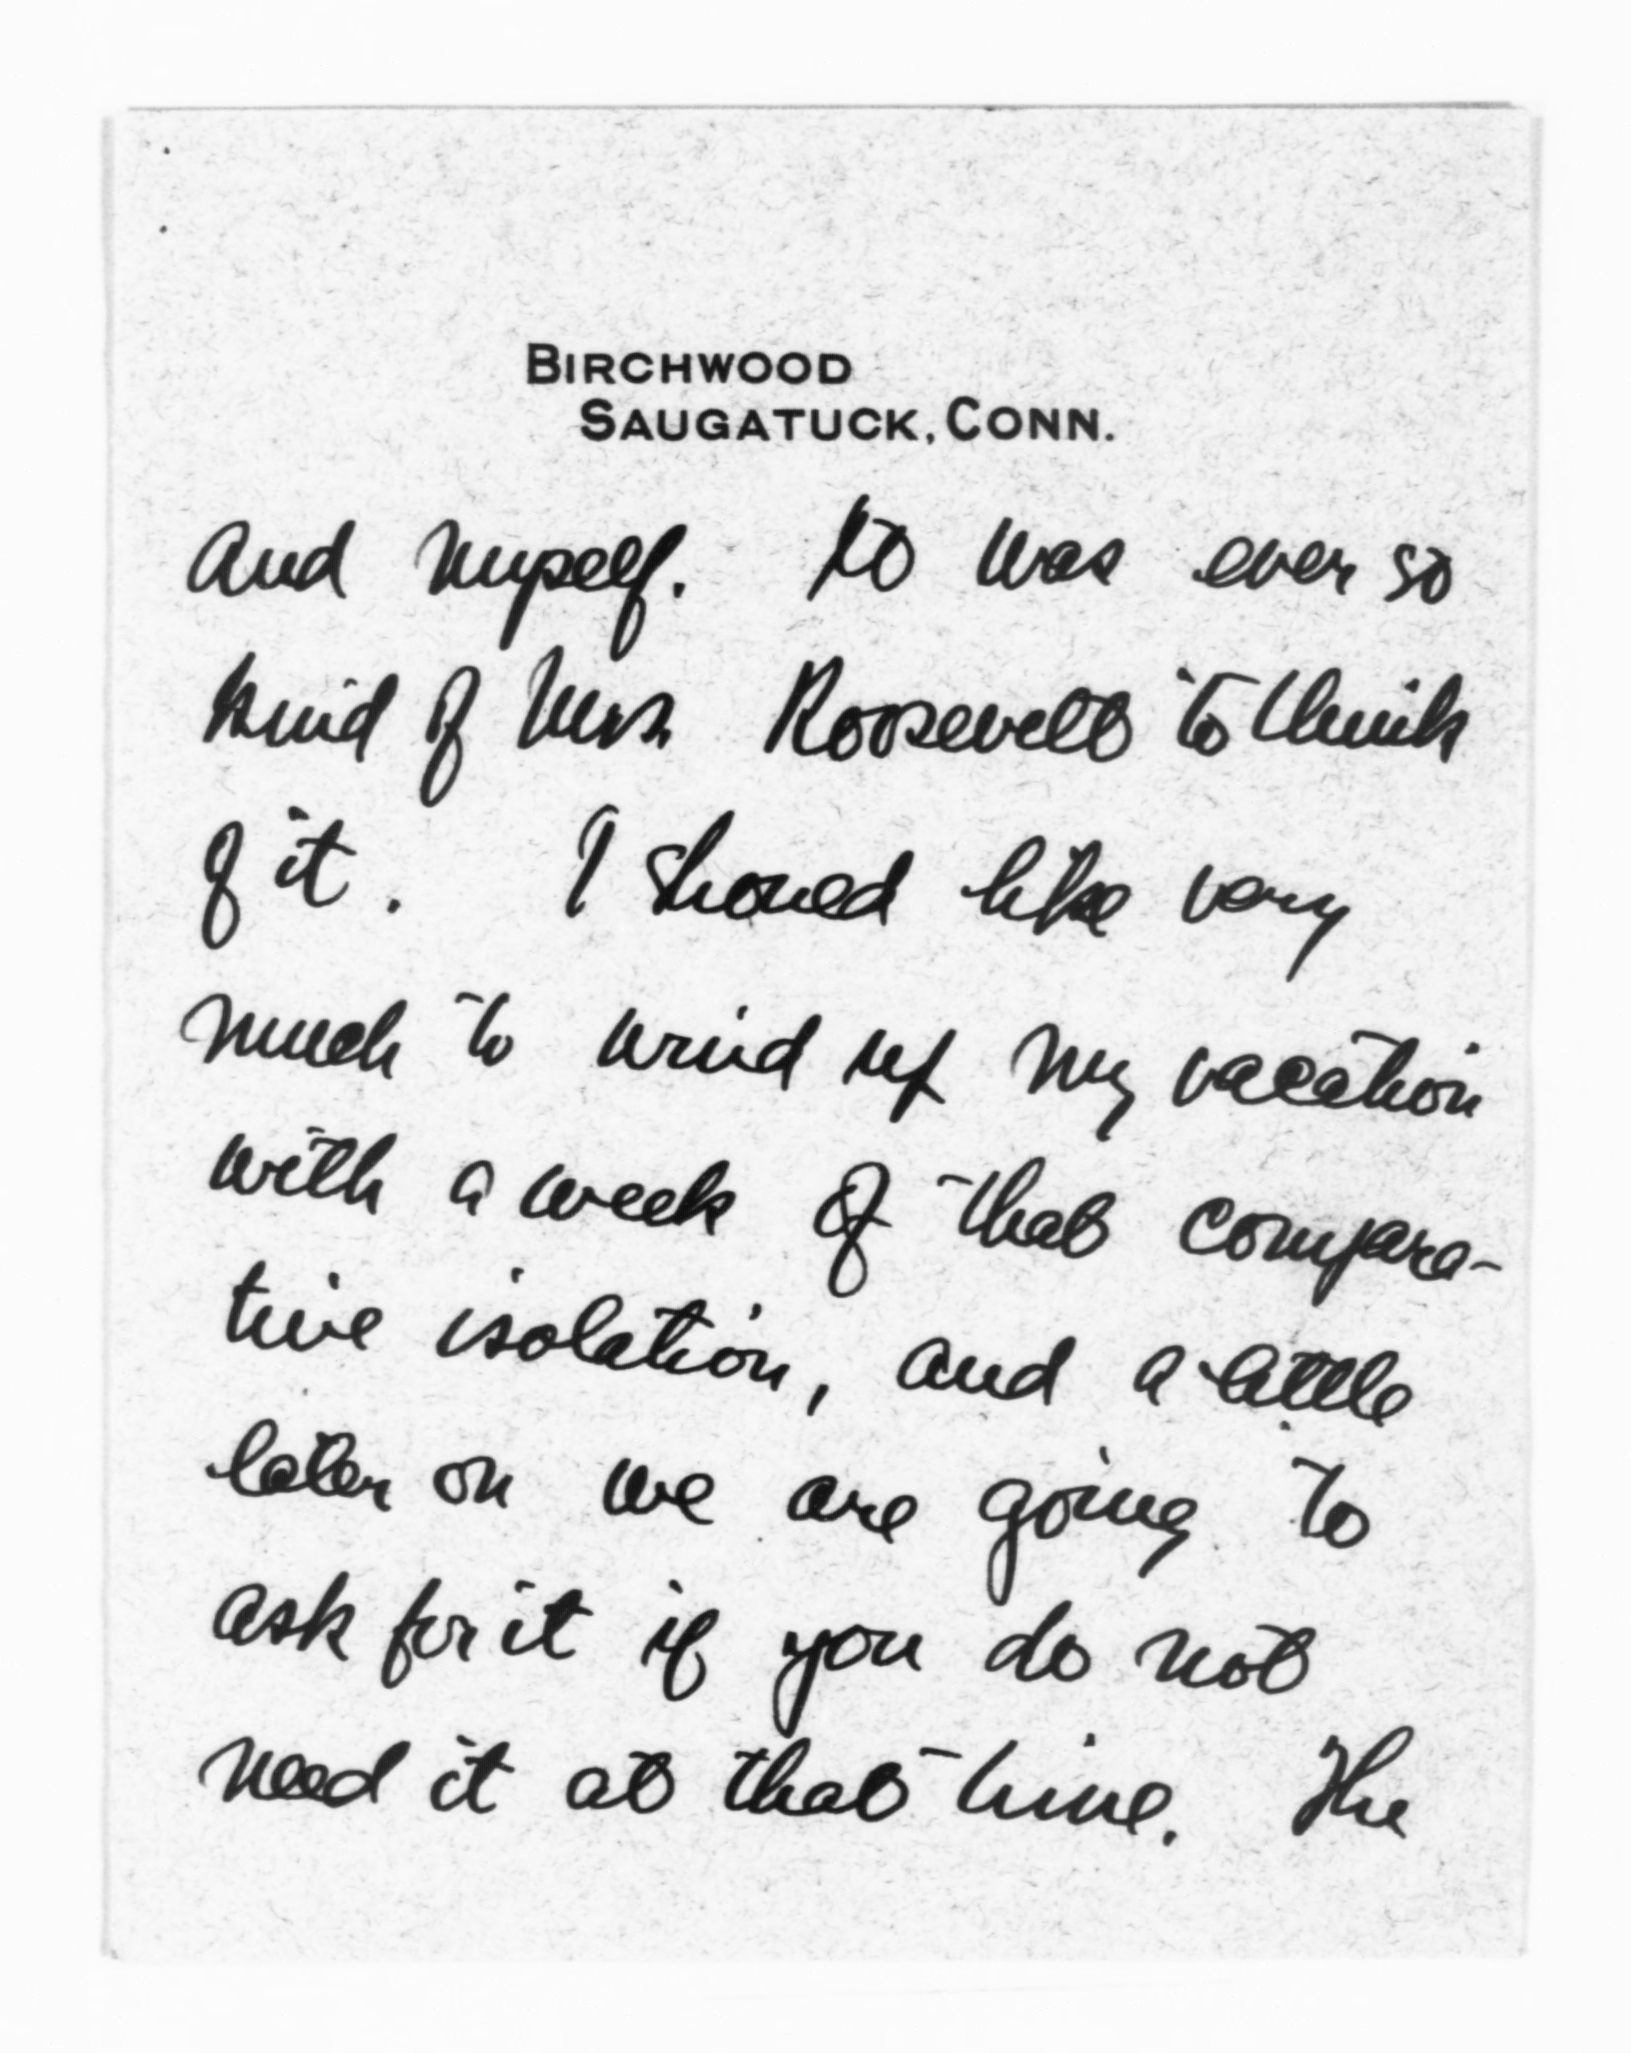 BIRCHWOOD
SAUGATUCK, CONN.
and myself. It was ever so
kind of Mrs Roosevelt to think
of it. I should like very
much to wind up my vacation
with a week of that compara-
tive isolation, and a little
later on we are going to
ask for it if you do not
need it at that time. The